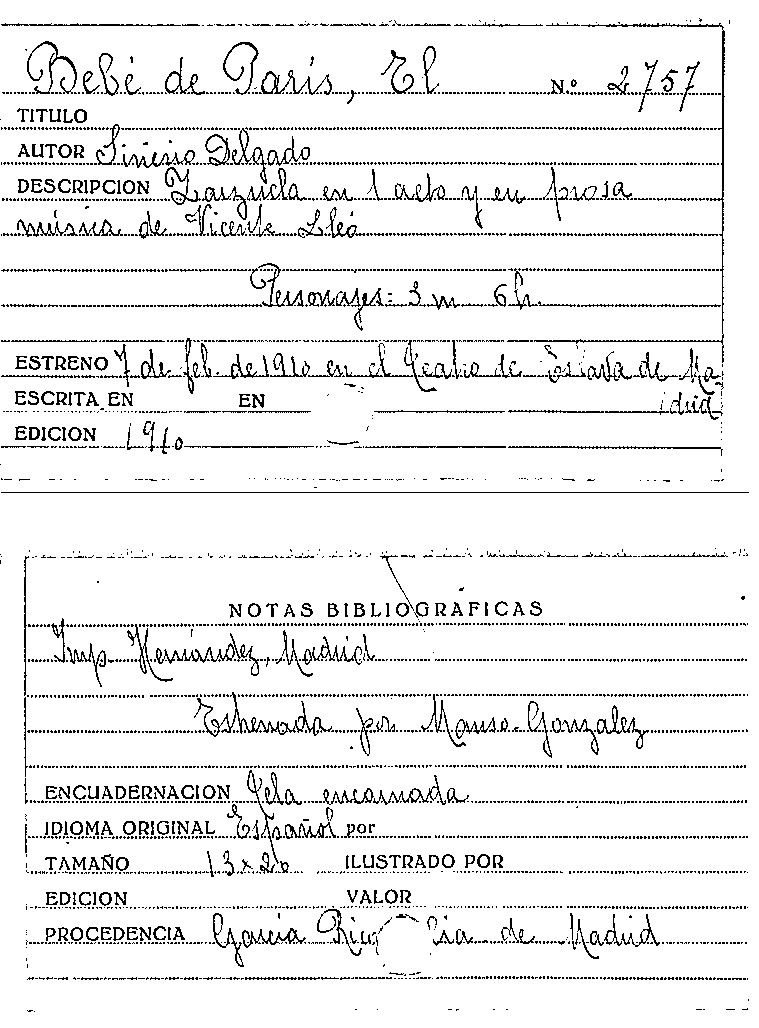 Bebé de París, El Nº 2757
TITULO
AUTOR Sinesio Delgado
DESCRIPCION Zarzuela en 1 acto y en prosa
música de Vicente Lleó
Personajes: 3 m 6 h.
ESTRENO 7 de feb. de 1910 en el Teatro de Eslava de Ma-
ESCRITA EN EN drid
EDICION 1910
NOTAS BIBLIOGRÁFICAS
Imp. Hernández, Madrid
Estrenada por Manso-Gonzalez
ENCUADERNACION Tela encarnada
IDIOMA ORIGINAL Español por
TAMAÑO 13 x 20 ILUSTRADO POR
EDICION VALOR
PROCEDENCIA García Rico de Madrid